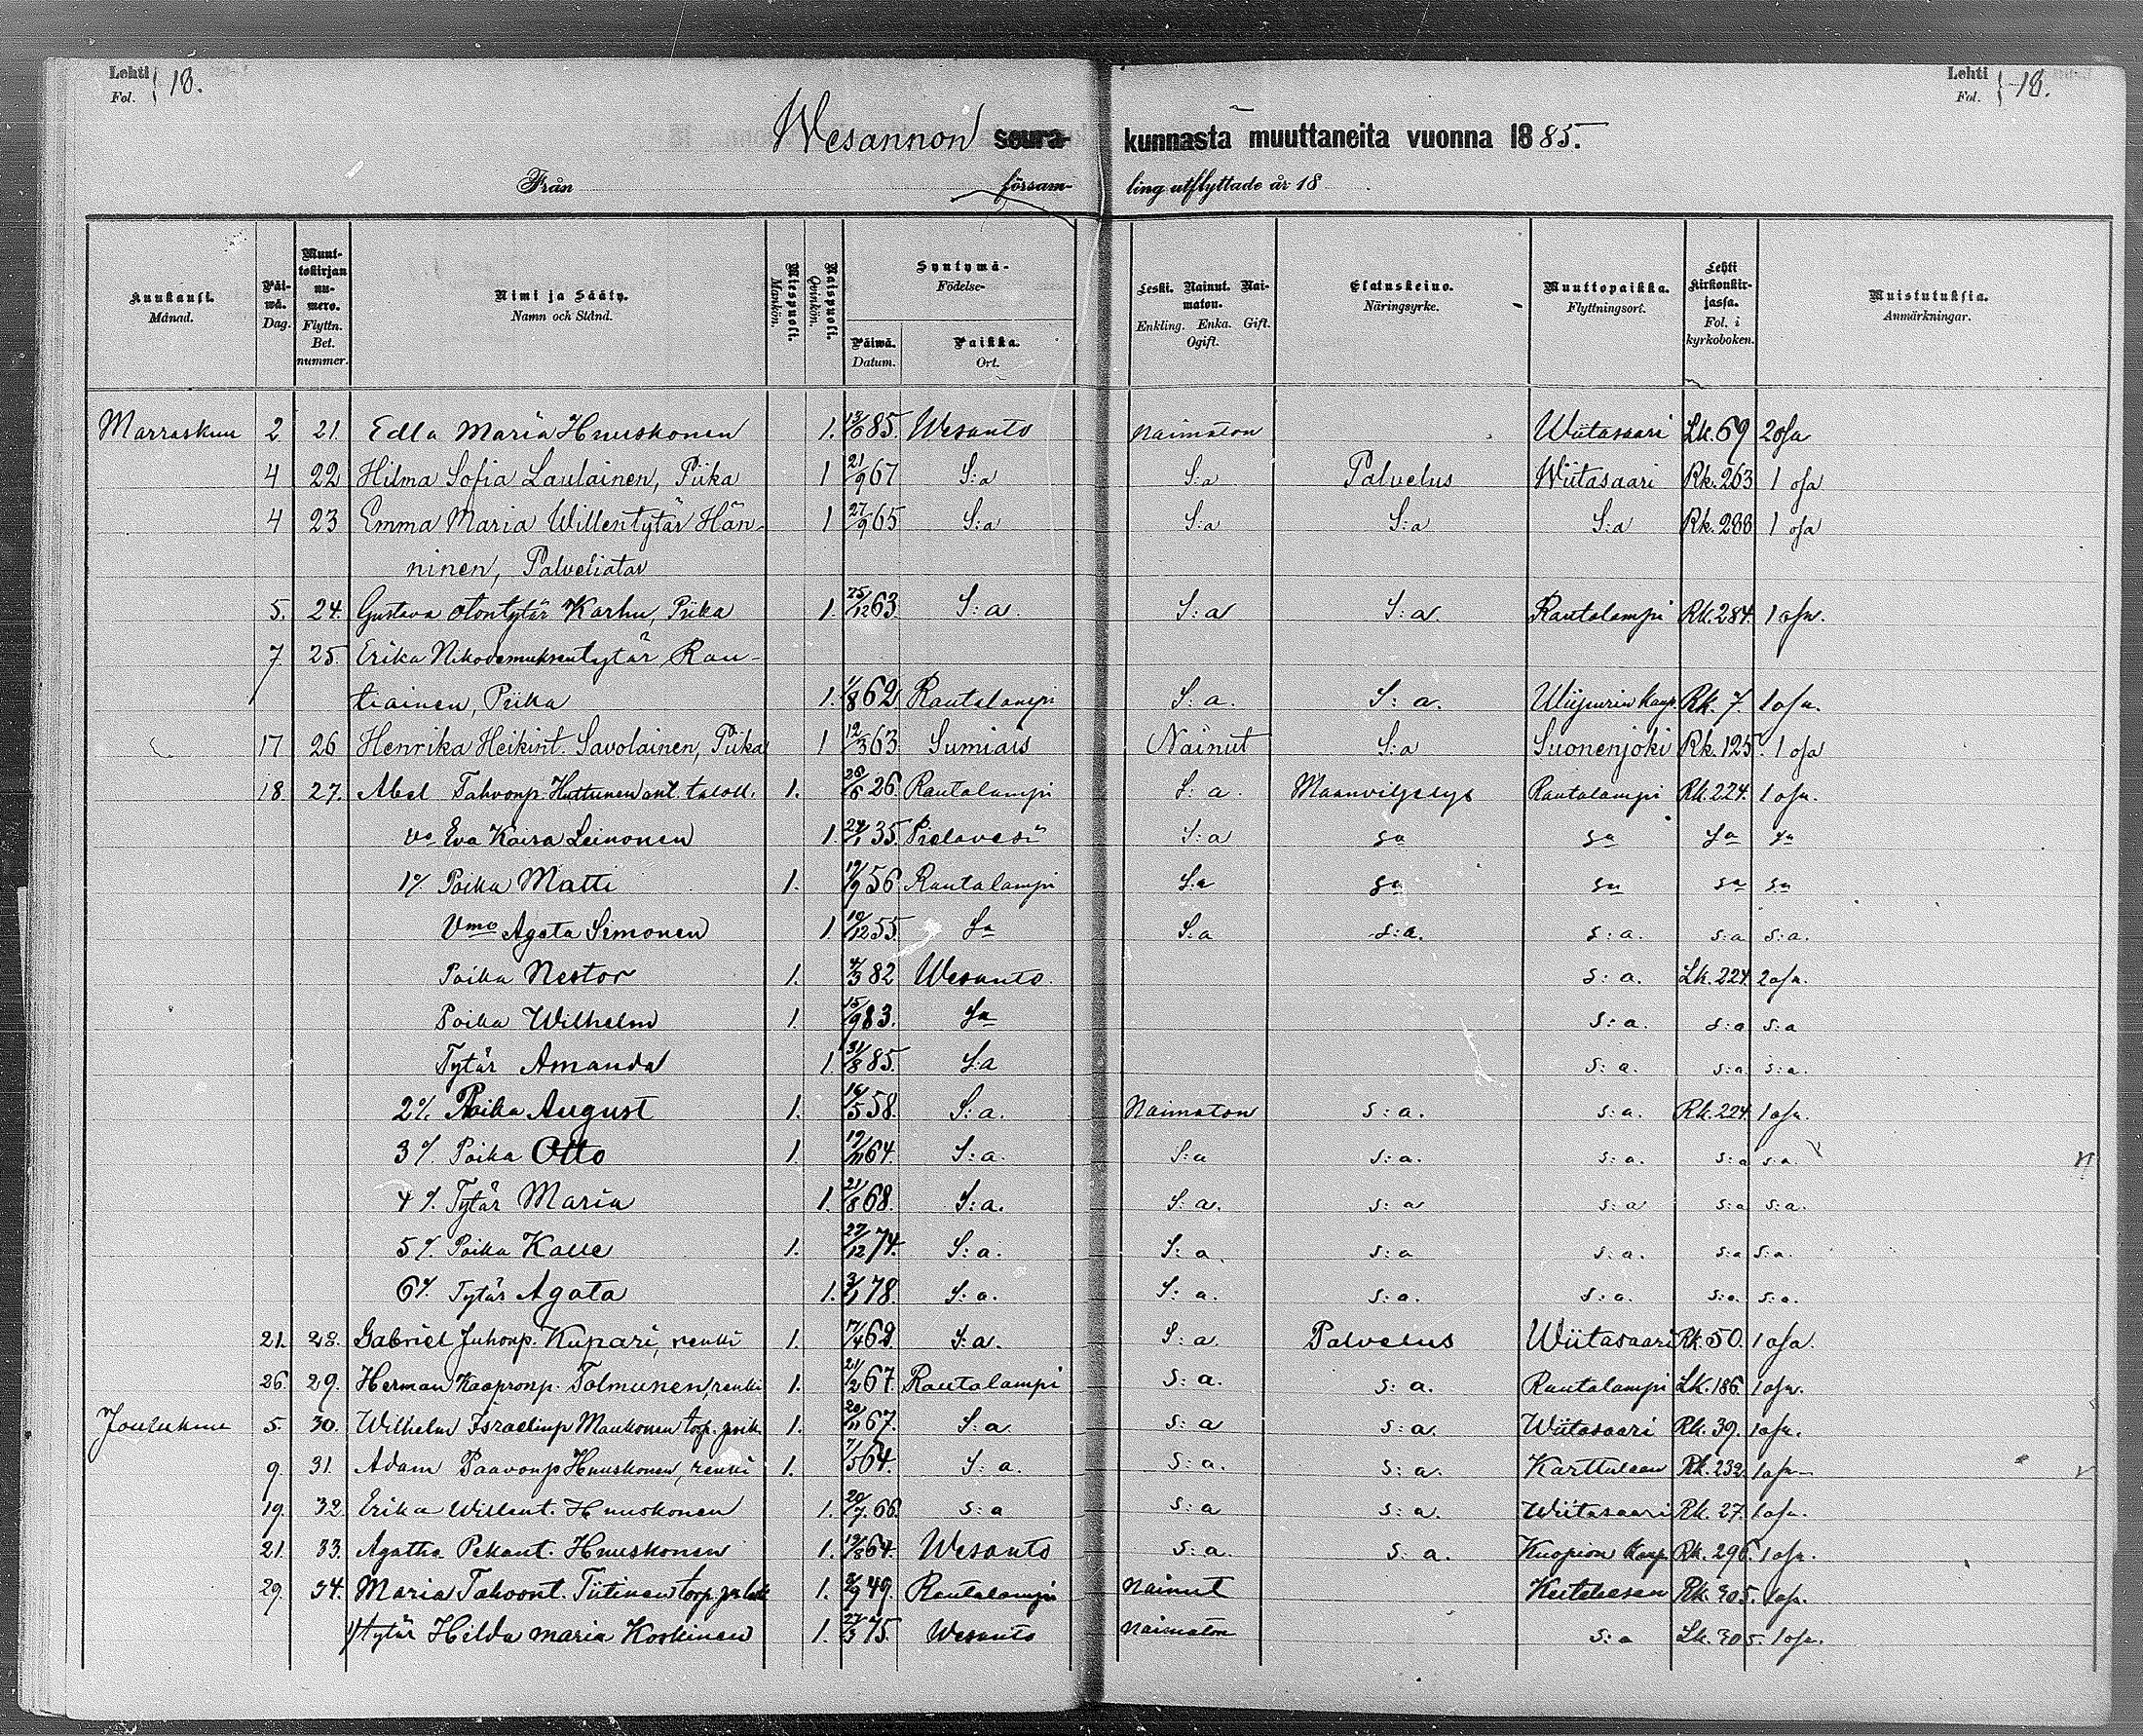 Lehti Fol. } 18.
Lehti Fol. } 18.
Wesannon seura- kunnasta muuttaneita vuonna 1885.
Från församling utflyttade år 18
Kuukausi. Månad. Päiwä. Dag. Muuttokirjan numero. Flyttn. Bet. nummer. Nimi ja Sääty. Namn och Stånd. Miespuoli. Mankön. Naispuoli. Qvinkön. Syntymä- Födelse- Päiwä. Datum. Paikka. Ort. Leski. Nainut. Naimaton. Enkling. Enka. Gift. Ogift. Elatuskeino. Näringsyrke. Muuttopaikka. Flyttningsort. Lehti Kirkonkirjassa. Fol. i kyrkoboken. Muistutuksia. Anmärkningar.
Marraskuu 2 21. Edla Maria Huuskonen 1. 85. Wesanto Naimaton Wiitasaari Lk. 69 2 osa
4 22 Hilma Sofia Laulainen, Piika 1 21/9 67 S:a S:a Palvelus Wiitasaari Rk. 263 1 osa
4 23 Emma Maria Willentytär Hän- 1 27/9 65 S:a S:a S:a S:a Rk. 288 1 osa
ninen, Palveliatar
5. 24. Gustava Otontytär Karhu, Piika 1. 25/12 63. S:a. S:a S:a. Rautalampi Rk. 284. 1 osa.
7 25. Erika Nikodemuksentytär Rau-
tiainen, Piika 1. 1/8 62 Rautalampi S:a. S:a. Wiipurin kaup. Rk. 7. 1 osa.
17 26 Henrika Heikint. Savolainen, Piika 1 12/3 63 Sumiais Nainut S:a Suonenjoki Rk. 125. 1 osa
18 27. Abel Tahvonp. Huttunen ent. taloll. 1. 26/6 26. Rautalampi S:a. Maanviljelys Rautalampi Rk. 224. 1 osa.
vo Eva Kaisa Leinonen 1. 24/1 35. Pielavesi S:a sa sa sa sa
1% Poika Matti 1. 19/9 56 Rautalampi S:a sa sa sa sa
Vmo Agata Simonen 1. 10/12 55. Sa S:a s:a. s:a. s:a s:a.
Poika Nestor 1. 4/3 82 Wesanto. s:a. Lk. 224. 2 osa.
Poika Wilhelm 1. 15/9 83. Sa s:a. s:a s:a
Tytär Amanda 1. 31/8 85. S:a s:a. s:a s:a.
2% Poika August 1. 16/5 58. S:a. Naimaton s:a. s:a. Rk. 224. 1 osa.
3% Poika Otto 1. 19/11 64. S:a. S:a s:a. s:a. s:a s:a
4% Tytär Maria 1. 21/8 68. S:a. S:a. s:a s:a s:a s:a.
5% Poika Kalle 1. 27/12 74. S:a. S:a. s:a s:a. s:a s:a.
6% Tytär Agata 1. 3/1 78. S:a. S:a. s:a. s:a. s:a. s:a.
21. 28. Gabriel Juhonp. Kupari, renki 1. 7/4 62. S:a. S:a. Palvelus Wiitasaari Rk. 50. 1 osa.
26. 29. Herman Kaapronp. Tolmunen, renki 1. 21/2 67. Rautalampi s:a. s:a. Rautalampi Lk. 186. 1 osa.
Joulukuu 5. 30. Wilhelm Israelinp Maukonen torp. poik. 1. 20/11 67. S:a. s:a s:a. Wiitasaari Rk. 39. 1 osa.
9. 31. Adam Paavonp Huuskonen, renki 1. 7/5 64. S:a. s:a. s:a. Karttulaan Rk. 232. 1 osa
19. 32. Erika Willent. Huuskonen 1. 20/7 66. s:a s:a s:a. Wiitasaari Rk. 27. 1 osa.
21. 33. Agatha Pekant. Huuskonen 1. 19/8 64. Wesanto s:a. s:a. Kuopion kaup. Rk. 296. 1 osa.
29. 34. Maria Tahvont. Tiitinen torp. 1. 49. Rautalampi Nainut Keiteleseen Rk. 305. 1 osa.
1/ tytär Hilda Maria Koskinen 1. 27/3 75. Wesanto Naimaton s:a Lk. 305. 1 osa.